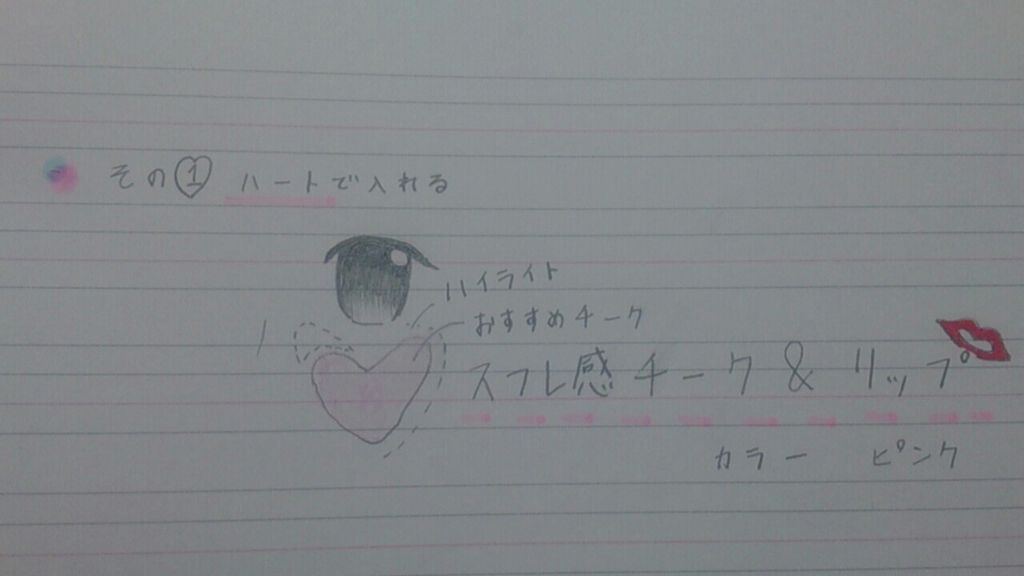 その① ハートで入れる
ハイライト
おすすめチーク
スフレ感チーク & リップ
カラー ピンク